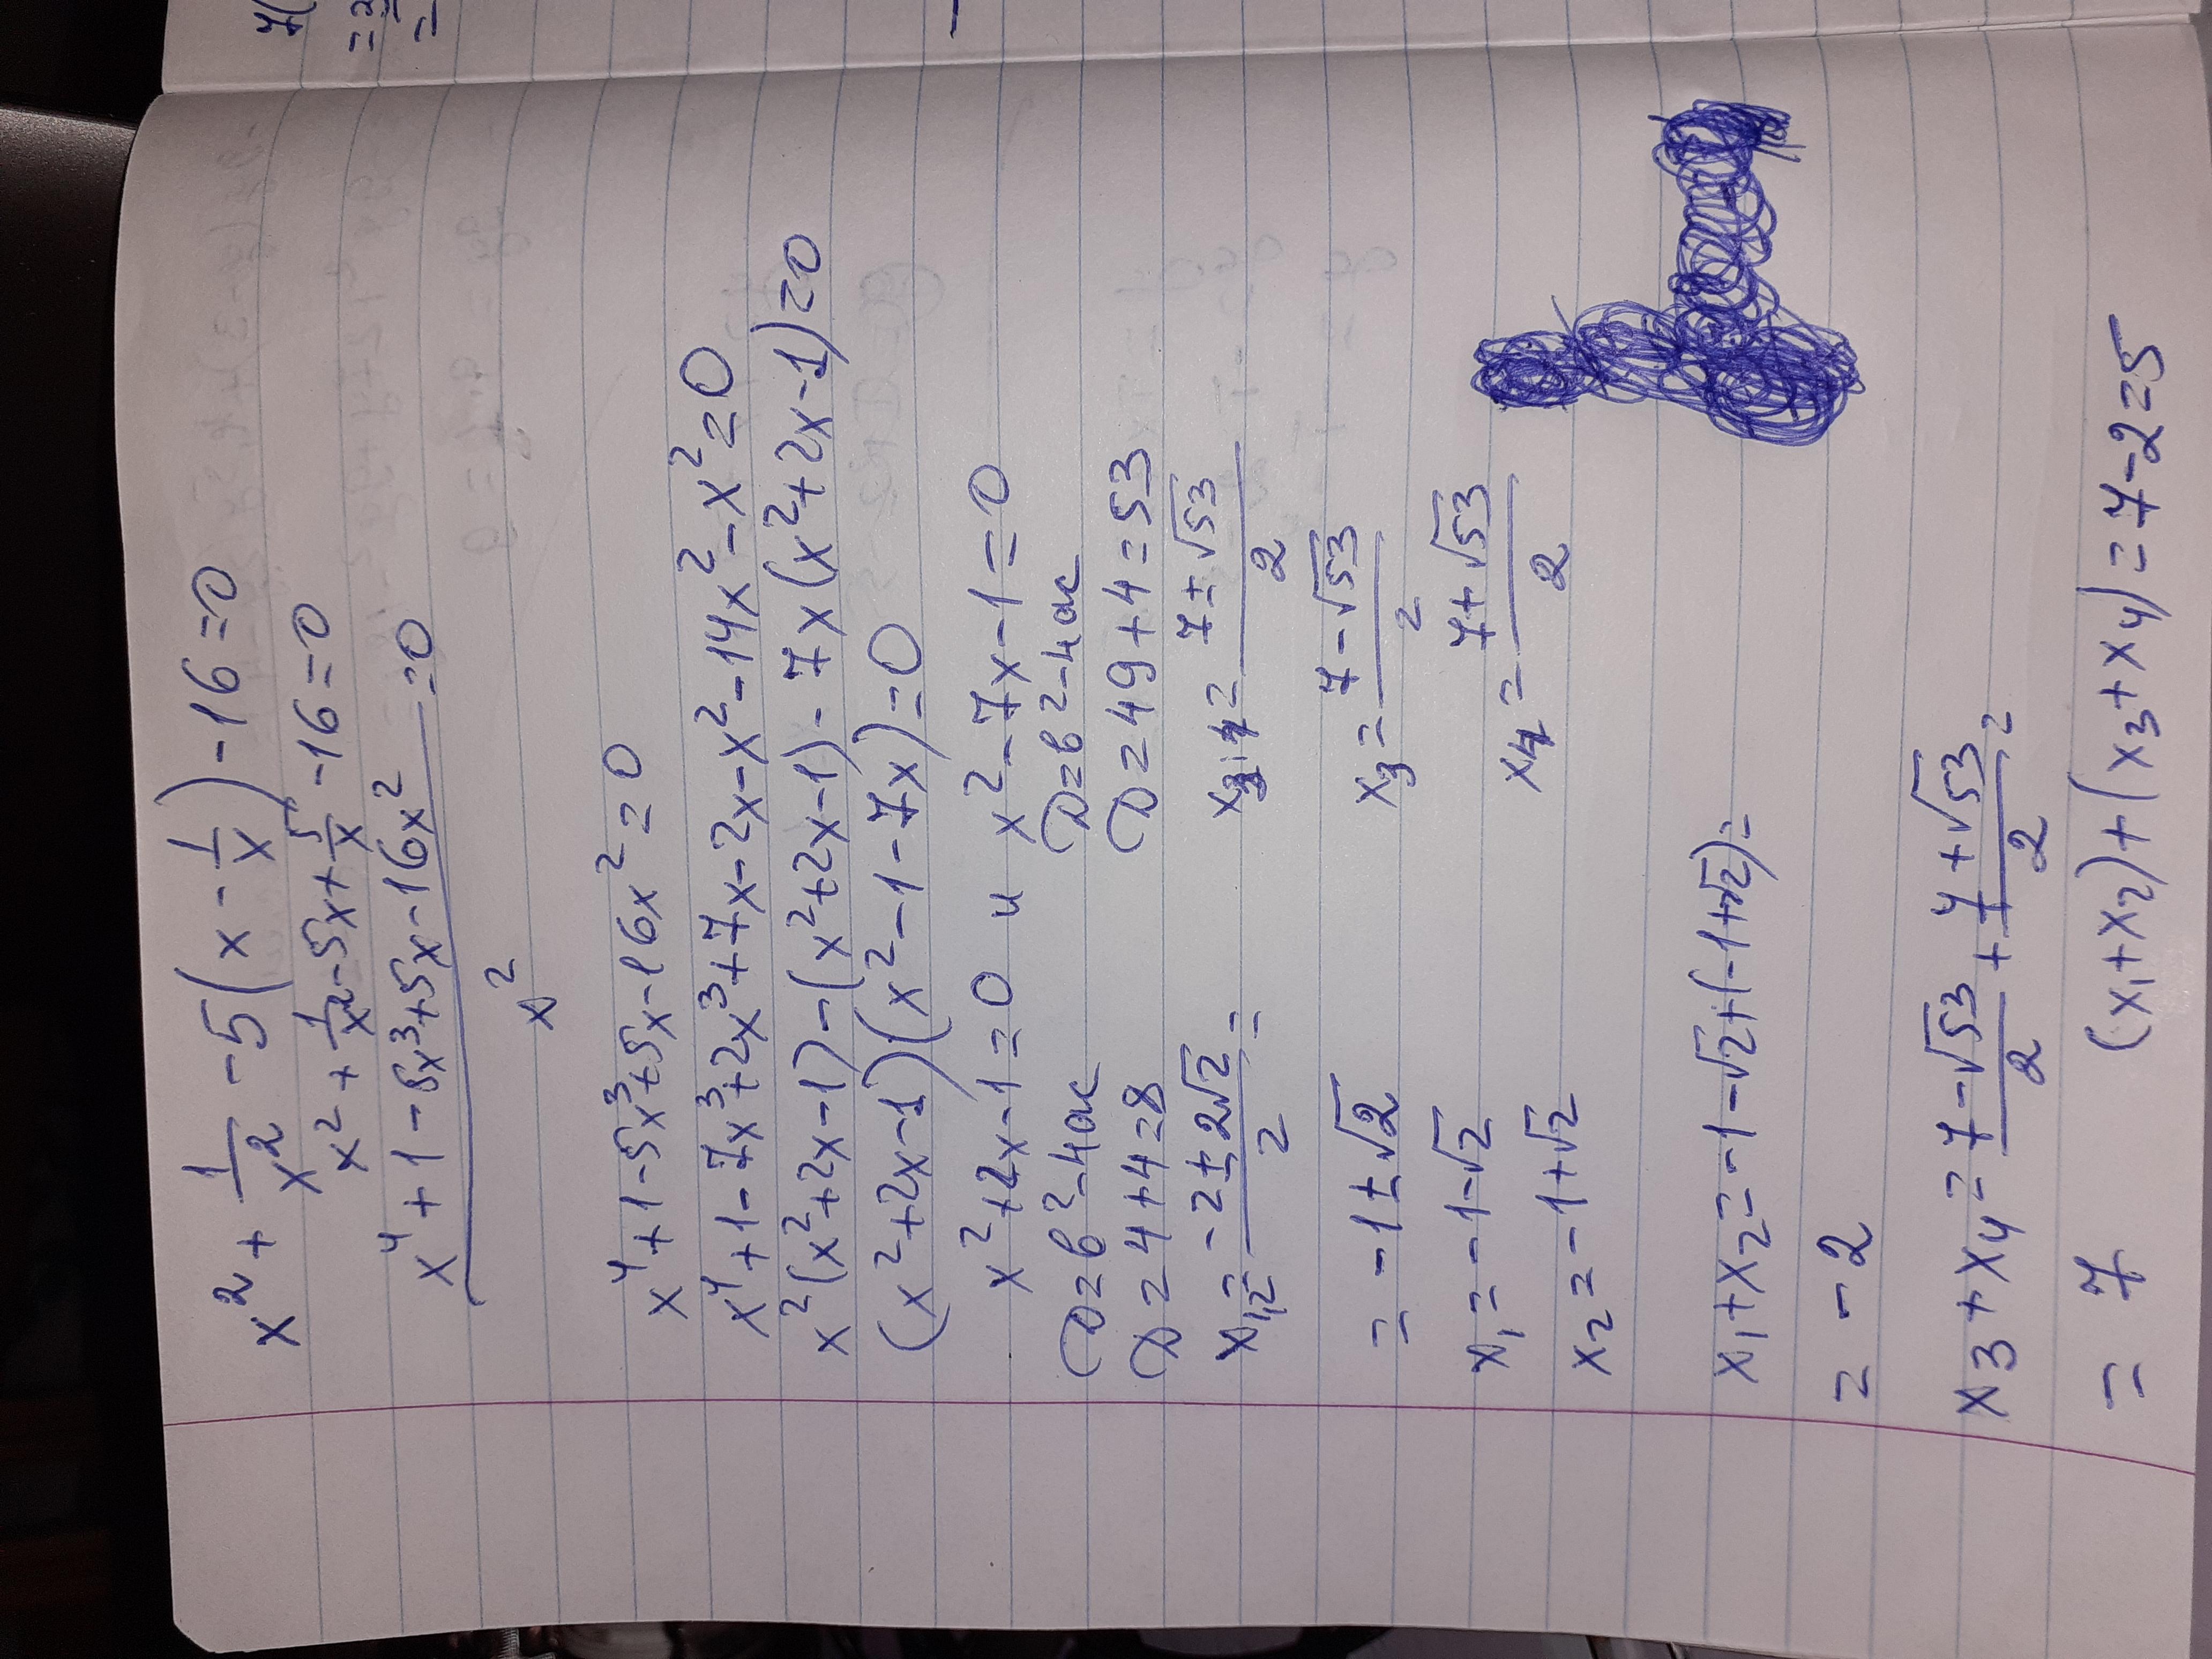 x² + 1/x² - 5(x - 1/x) - 16 = 0
x² + 1/x² - 5x + 5/x - 16 = 0
x⁴ + 1 - 5x³ + 5x - 16x² / x² = 0
x⁴ + 1 - 5x³ + 5x - 16x² = 0
x⁴ + 1 - 7x³ + 2x³ + 7x - 2x - x² - 14x² - x² = 0
x²(x² + 2x - 1) - (x² + 2x - 1) - 7x(x² + 2x - 1) = 0
(x² + 2x - 1)(x² - 1 - 7x) = 0
x² + 2x - 1 = 0 и x² - 7x - 1 = 0
D = b² - 4ac D = b² - 4ac
D = 4 + 4 = 8 D = 49 + 4 = 53
x₁,₂ = -2 ± 2√2 / 2 = x₃,₄ = 7 ± √53 / 2
= -1 ± √2 x₃ = 7 - √53 / 2
x₁ = -1 - √2 x₄ = 7 + √53 / 2
x₂ = -1 + √2
x₁ + x₂ = -1 - √2 + (-1 + √2) =
= -2
x₃ + x₄ = 7 - √53 / 2 + 7 + √53 / 2 =
= 7 (x₁ + x₂) + (x₃ + x₄) = 7 - 2 = 5